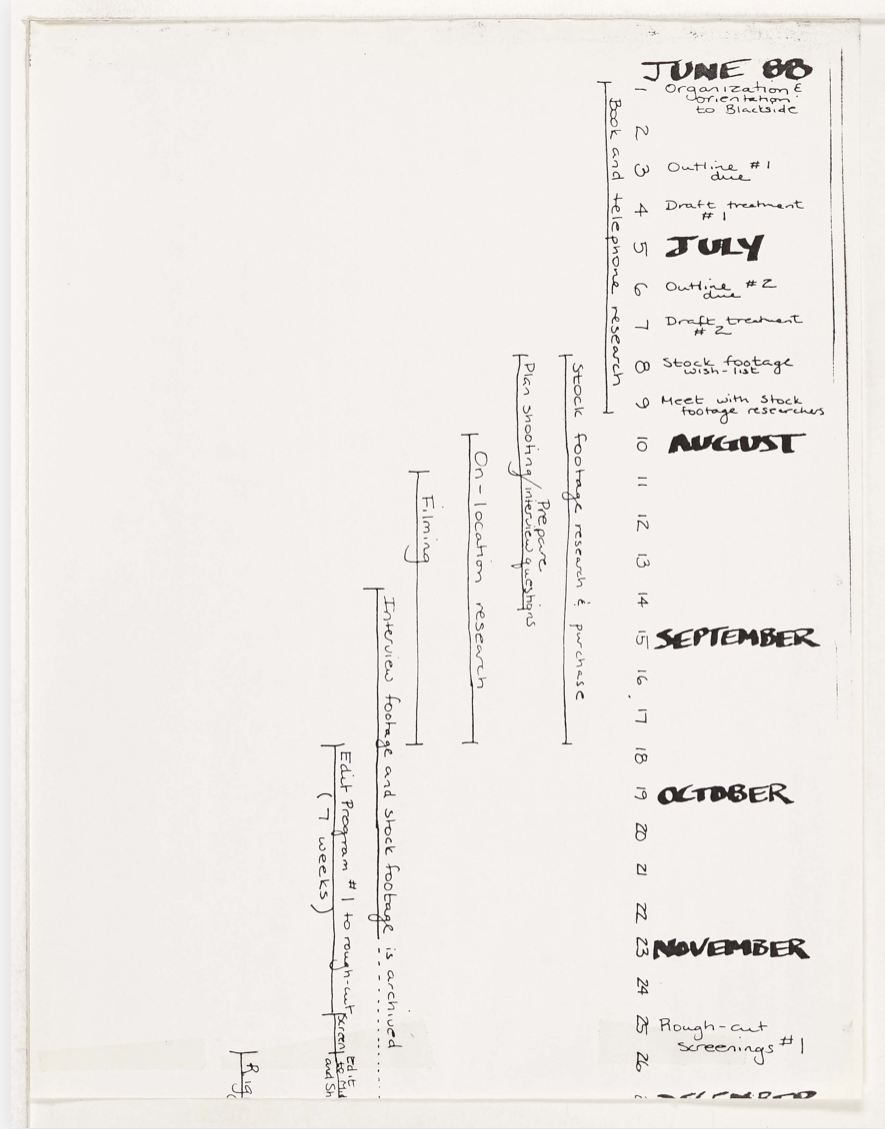 JUNE 88
1 Organization &
orientation
to Blackside
2
3 Outline #1
due
4 Draft treatment
#1
5 JULY
6 Outline #2
due
7 Draft treatment
#2
8 Stock footage
wish-list
9 Meet with Stock
footage researchers
10 AUGUST
11
12
13
14
15 SEPTEMBER
16
17
18
19 OCTOBER
20
21
22
23 NOVEMBER
24
25 Rough-cut
screenings #1
26
Book and telephone research
Stock footage research & purchase
Prepare
Plan shooting/interview questions
On-location research
Filming
Interview footage and stock footage is archived
Edit Program #1 to rough-cut
(7 weeks)
screen
Edit
to
and